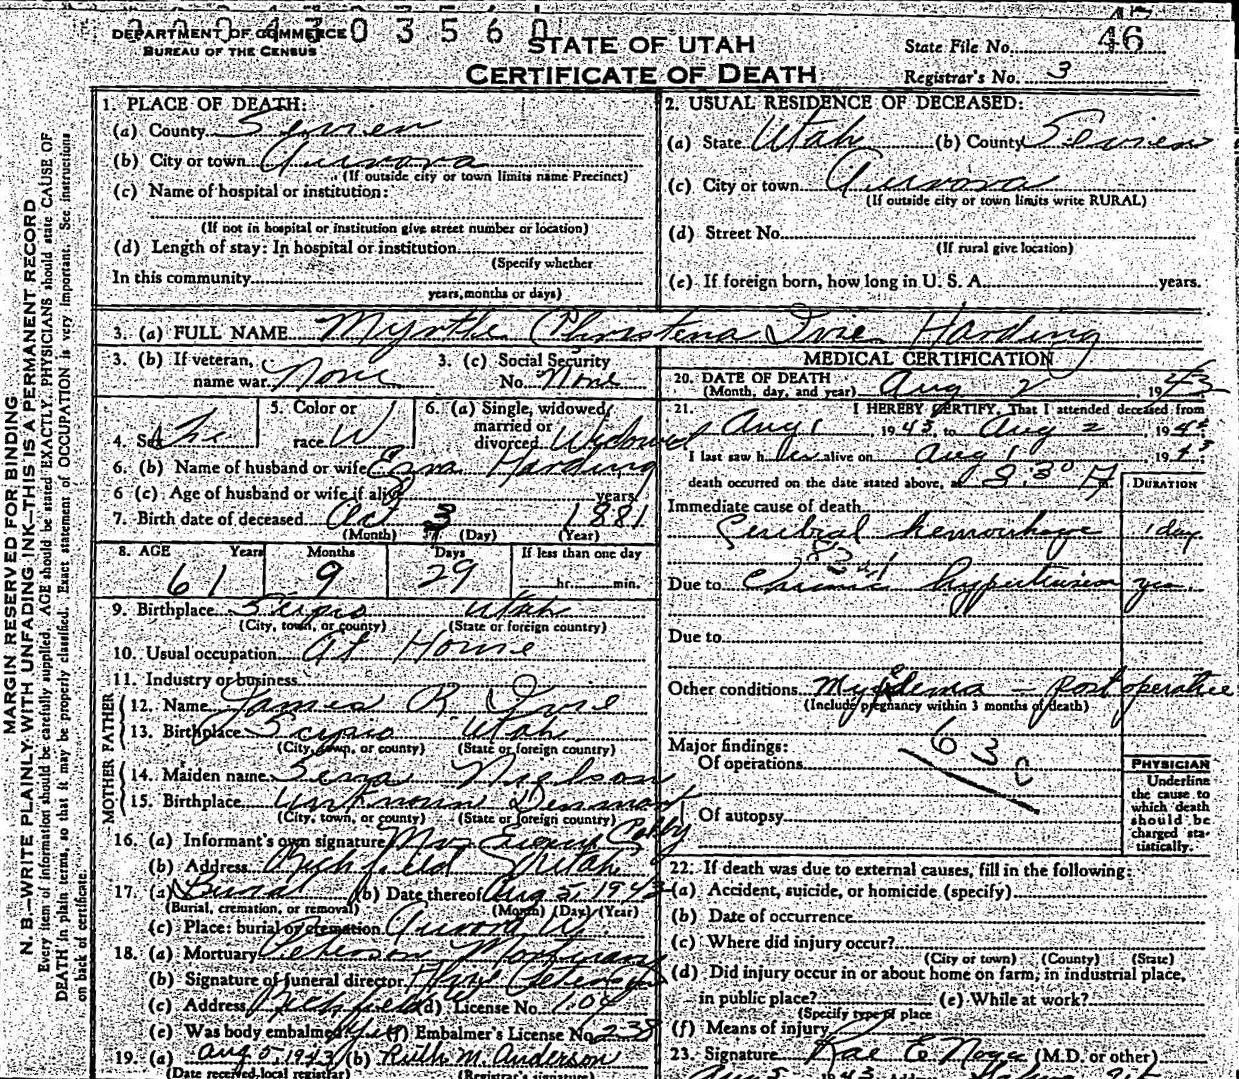 DEPARTMENT OF COMMERCE
BUREAU OF THE CENSUS
STATE OF UTAH
CERTIFICATE OF DEATH
State File No. 46
Registrar's No. 3
MARGIN RESERVED FOR BINDING
N. B.—WRITE PLAINLY WITH UNFADING INK—THIS IS A PERMANENT RECORD
Every item of information should be carefully supplied. AGE should be stated EXACTLY. PHYSICIANS should state CAUSE OF
DEATH in plain terms, so that it may be properly classified. Exact statement of OCCUPATION is very important. See instructions
on back of certificate.
1. PLACE OF DEATH:
(a) County Sevier
(b) City or town Aurora
(If outside city or town limits name Precinct)
(c) Name of hospital or institution:
(If not in hospital or institution give street number or location)
(d) Length of stay: In hospital or institution
(Specify whether
In this community
years, months or days)
2. USUAL RESIDENCE OF DECEASED:
(a) State Utah (b) County Sevier
(c) City or town Aurora
(If outside city or town limits write RURAL)
(d) Street No.
(If rural give location)
(e) If foreign born, how long in U. S. A. years.
3. (a) FULL NAME Myrthe Christena Ivie Harding
3. (b) If veteran,
name war None
3. (c) Social Security
No. None
4. Sex Fe
5. Color or
race W
6. (a) Single, widowed,
married or
divorced Widowed
6. (b) Name of husband or wife Ezra Harding
6 (c) Age of husband or wife if alive years
7. Birth date of deceased Oct 3 1881
(Month) (Day) (Year)
8. AGE Years Months Days If less than one day
61 9 29 hr. min.
9. Birthplace Scipio Utah
(City, town, or county) (State or foreign country)
10. Usual occupation At Home
11. Industry or business
FATHER
12. Name James R Ivie
13. Birthplace Scipio Utah
(City, town, or county) (State or foreign country)
MOTHER
14. Maiden name Sena Nielson
15. Birthplace Unknown Denmark
(City, town, or county) (State or foreign country)
16. (a) Informant's own signature Mrs
(b) Address Richfield Utah
17. (a) Burial (b) Date thereof Aug 5, 1943
(Burial, cremation, or removal) (Month) (Day) (Year)
(c) Place: burial or cremation Aurora
18. (a) Mortuary
(b) Signature of funeral director
(c) Address Richfield (d) License No. 109
(e) Was body embalmed Yes (f) Embalmer's License No. 238
19. (a) Aug 5, 1943 (b) Ruth M. Anderson
(Date received local registrar) (Registrar's signature)
MEDICAL CERTIFICATION
20. DATE OF DEATH
(Month, day, and year) Aug 2 1943
21. I HEREBY CERTIFY, That I attended deceased from
Aug 1, 1943, to Aug 2, 194
I last saw her alive on Aug 1 1943
death occurred on the date stated above, at
DURATION
Immediate cause of death
Cerebral hemorrhage 1 day
83 a 1
Due to Chronic hypertension yrs
Due to
Other conditions Myxedema - post operative
(Include pregnancy within 3 months of death)
Major findings:
Of operations
63 c
Of autopsy
PHYSICIAN
Underline
the cause to
which death
should be
charged sta-
tistically.
22. If death was due to external causes, fill in the following:
(a) Accident, suicide, or homicide (specify)
(b) Date of occurrence
(c) Where did injury occur?
(City or town) (County) (State)
(d) Did injury occur in or about home on farm, in industrial place,
in public place? (e) While at work?
(Specify type of place
(f) Means of injury
23. Signature Rae E Noyes (M.D. or other)